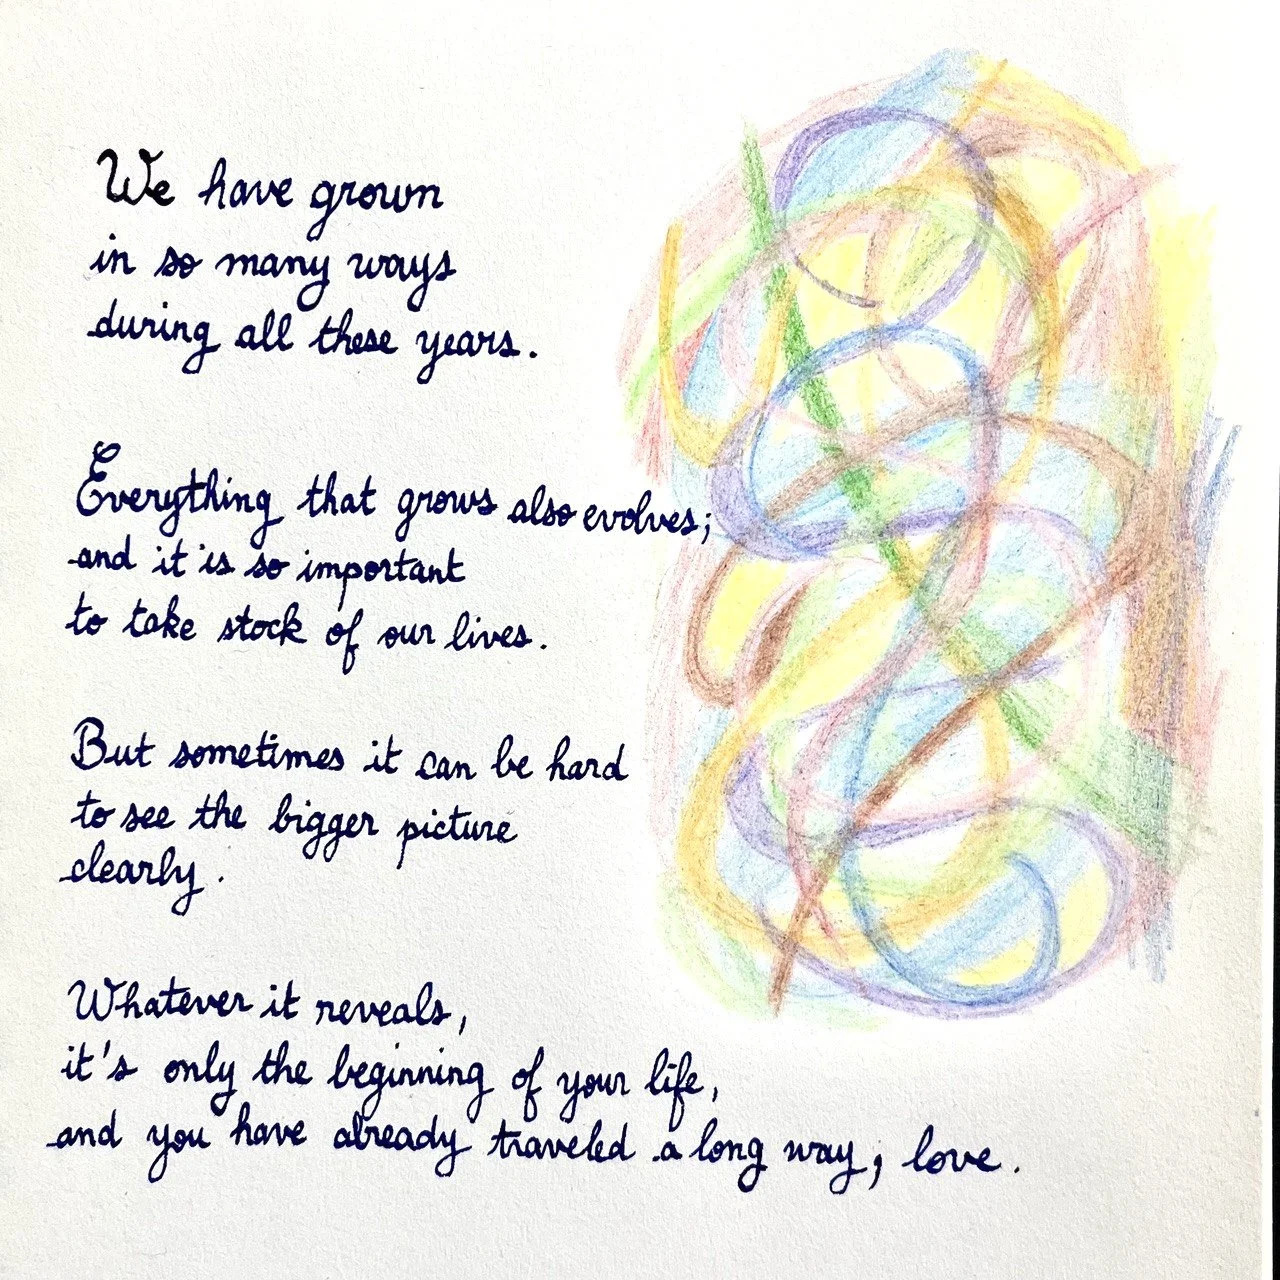 We have grown
in so many ways
during all these years.
Everything that grows also evolves;
and it is so important
to take stock of our lives.
But sometimes it can be hard
to see the bigger picture
clearly.
Whatever it reveals,
it's only the beginning of your life,
and you have already traveled a long way, love.